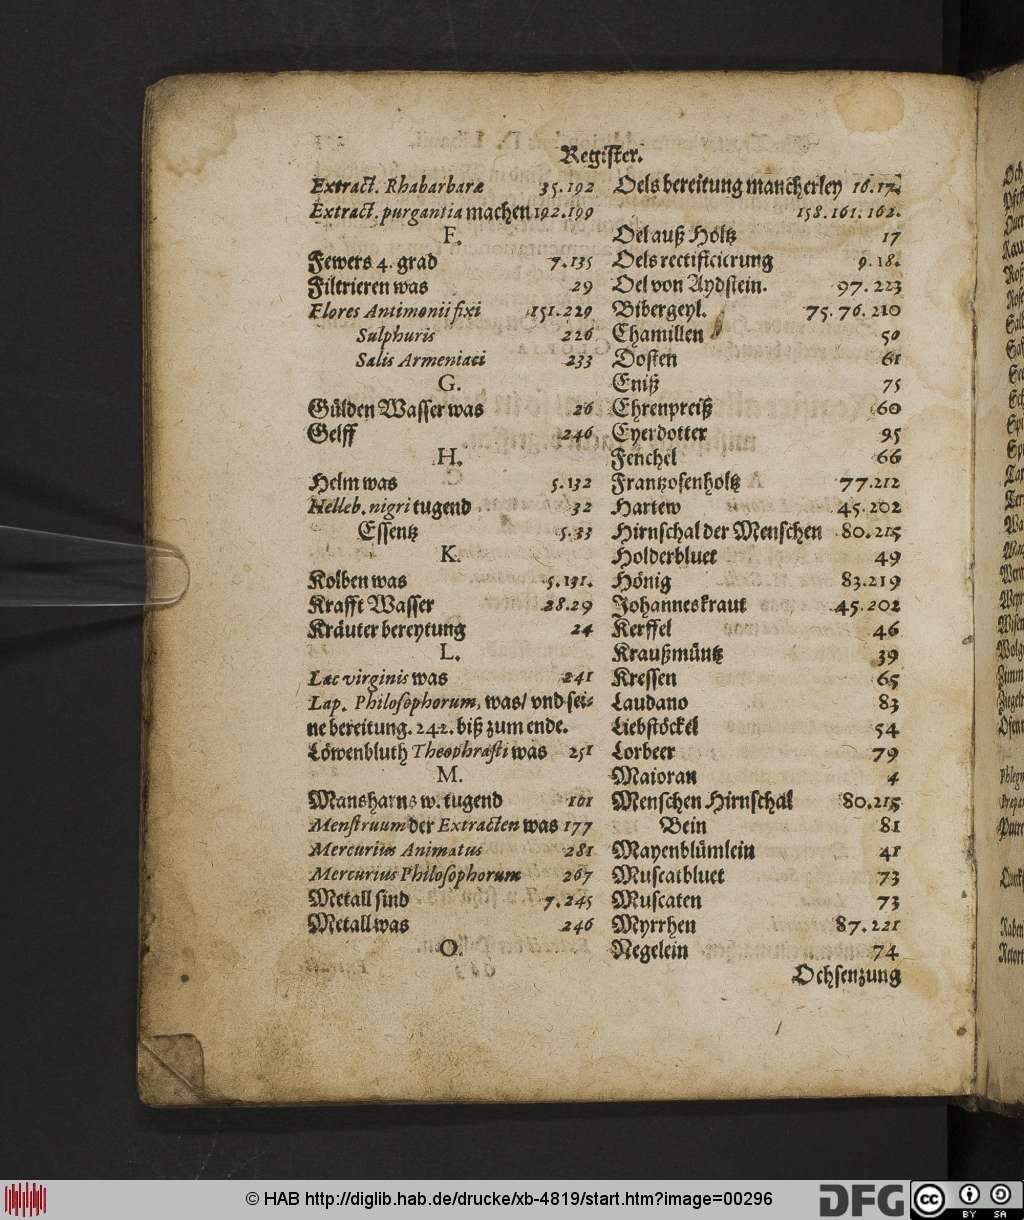 Register.
Extract. Rhabarbaræ 35.192
Extract. purgantia machen 192.199
F.
Fewers 4. grad 7.135
Filtrieren was 29
Flores Antimonii fixi 151.229
Sulphuris 226
Salis Armeniaci 233
G.
Gülden Wasser was 26
Gelff 246
H.
Helm was 5.132
Helleb. nigri tugend 32
Essentz 5.33
K.
Kolben was 5.131.
Krafft Wasser 28.29
Kräuter bereytung 24
L.
Lac virginis was 241
Lap. Philosophorum, was/ vnd sei-
ne bereitung. 242. biß zum ende.
Löwenbluth Theophrasti was 251
M.
Mansharns w. tugend 101
Menstruum der Extracten was 177
Mercurius Animatus 281
Mercurius Philosophorum 267
Metall sind 7.245
Metall was 246
O.
Oels bereitung mancherley 16.17.
158.161.162.
Oel auß Höltz 17
Oels rectificierung 9.18.
Oel von Aydstein. 97.223
Bibergeyl. 75.76.210
Chamillen 50
Dosten 61
Eniß 75
Ehrenpreiß 60
Eyerdotter 95
Fenchel 66
Frantzosenholtz 77.212
Hartew 45.202
Hirnschal der Menschen 80.215
Holderbluet 49
Hönig 83.219
Johanneskraut 45.202
Kerffel 46
Kraußmüntz 39
Kressen 65
Laudano 83
Liebstöckel 54
Lorbeer 79
Maioran 4
Menschen Hirnschäl 80.215
Bein 81
Mayenblümlein 41
Muscatbluet 73
Muscaten 73
Myrrhen 87.221
Negelein 74
Ochsenzung
© HAB http://diglib.hab.de/drucke/xb-4819/start.htm?image=00296
DFG
cc BY SA